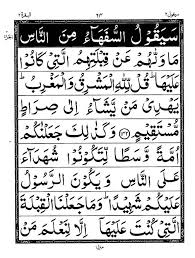 سَيَقُوْلُ السُّفَهَآءُ مِنَ النَّاسِ
مَا وَلّٰىهُمْ عَنْ قِبْلَتِهِمُ الَّتِيْ كَانُوْا
عَلَيْهَاؕ قُلْ لِّلّٰهِ الْمَشْرِقُ وَالْمَغْرِبُؕ
يَهْدِيْ مَنْ يَّشَآءُ اِلٰى صِرَاطٍ
مُّسْتَقِيْمٍ ﴿١٤٢﴾ وَكَذٰلِكَ جَعَلْنٰكُمْ
اُمَّةً وَّسَطًا لِّتَكُوْنُوْا شُهَدَآءَ
عَلَى النَّاسِ وَيَكُوْنَ الرَّسُوْلُ
عَلَيْكُمْ شَهِيْدًاؕ وَمَا جَعَلْنَا الْقِبْلَةَ
الَّتِيْ كُنْتَ عَلَيْهَآ اِلَّا لِنَعْلَمَ مَنْ